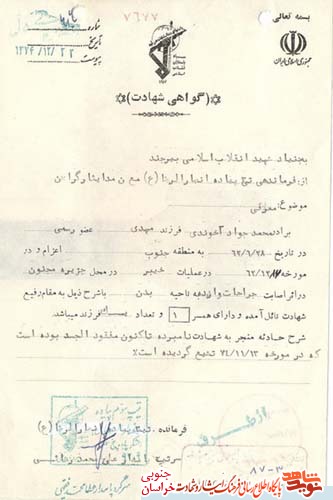 بسمه تعالی
جمهوری اسلامی ایران
شماره
تاریخ ۱۳۷۴/۱۲/۲۲
پیوست
۷۶۷۷
(گواهی شهادت)
بنیاد شهید انقلاب اسلامی بیرجند
از: فرماندهی تیپ پیاده انصارالرضا (ع)
موضوع: معرفی
برادر محمد جواد آخوندی فرزند مهدی عضو رسمی
در تاریخ ۶۲/۶/۲۸ به منطقه جنوب اعزام و در
مورخه در عملیات خیبر در محل جزیره مجنون
در اثر اصابت جراحات وارده به ناحیه بدن با شرح ذیل به مقام رفیع
شهادت نائل آمده و دارای همسر ۱ و تعداد فرزند میباشد.
شرح حادثه منجر به شهادت نامبرده تاکنون مفقود الجسد بوده است
که در مورخه ۷۴/۱۱/۱۳ تشیع گردیده است٪
فرمانده تیپ پیاده انصارالرضا (ع)
از طرف
۸۷-۳
پایگاه اطلاع رسانی فرهنگ ایثار و شهادت
خراسان جنوبی
navideshahed.com